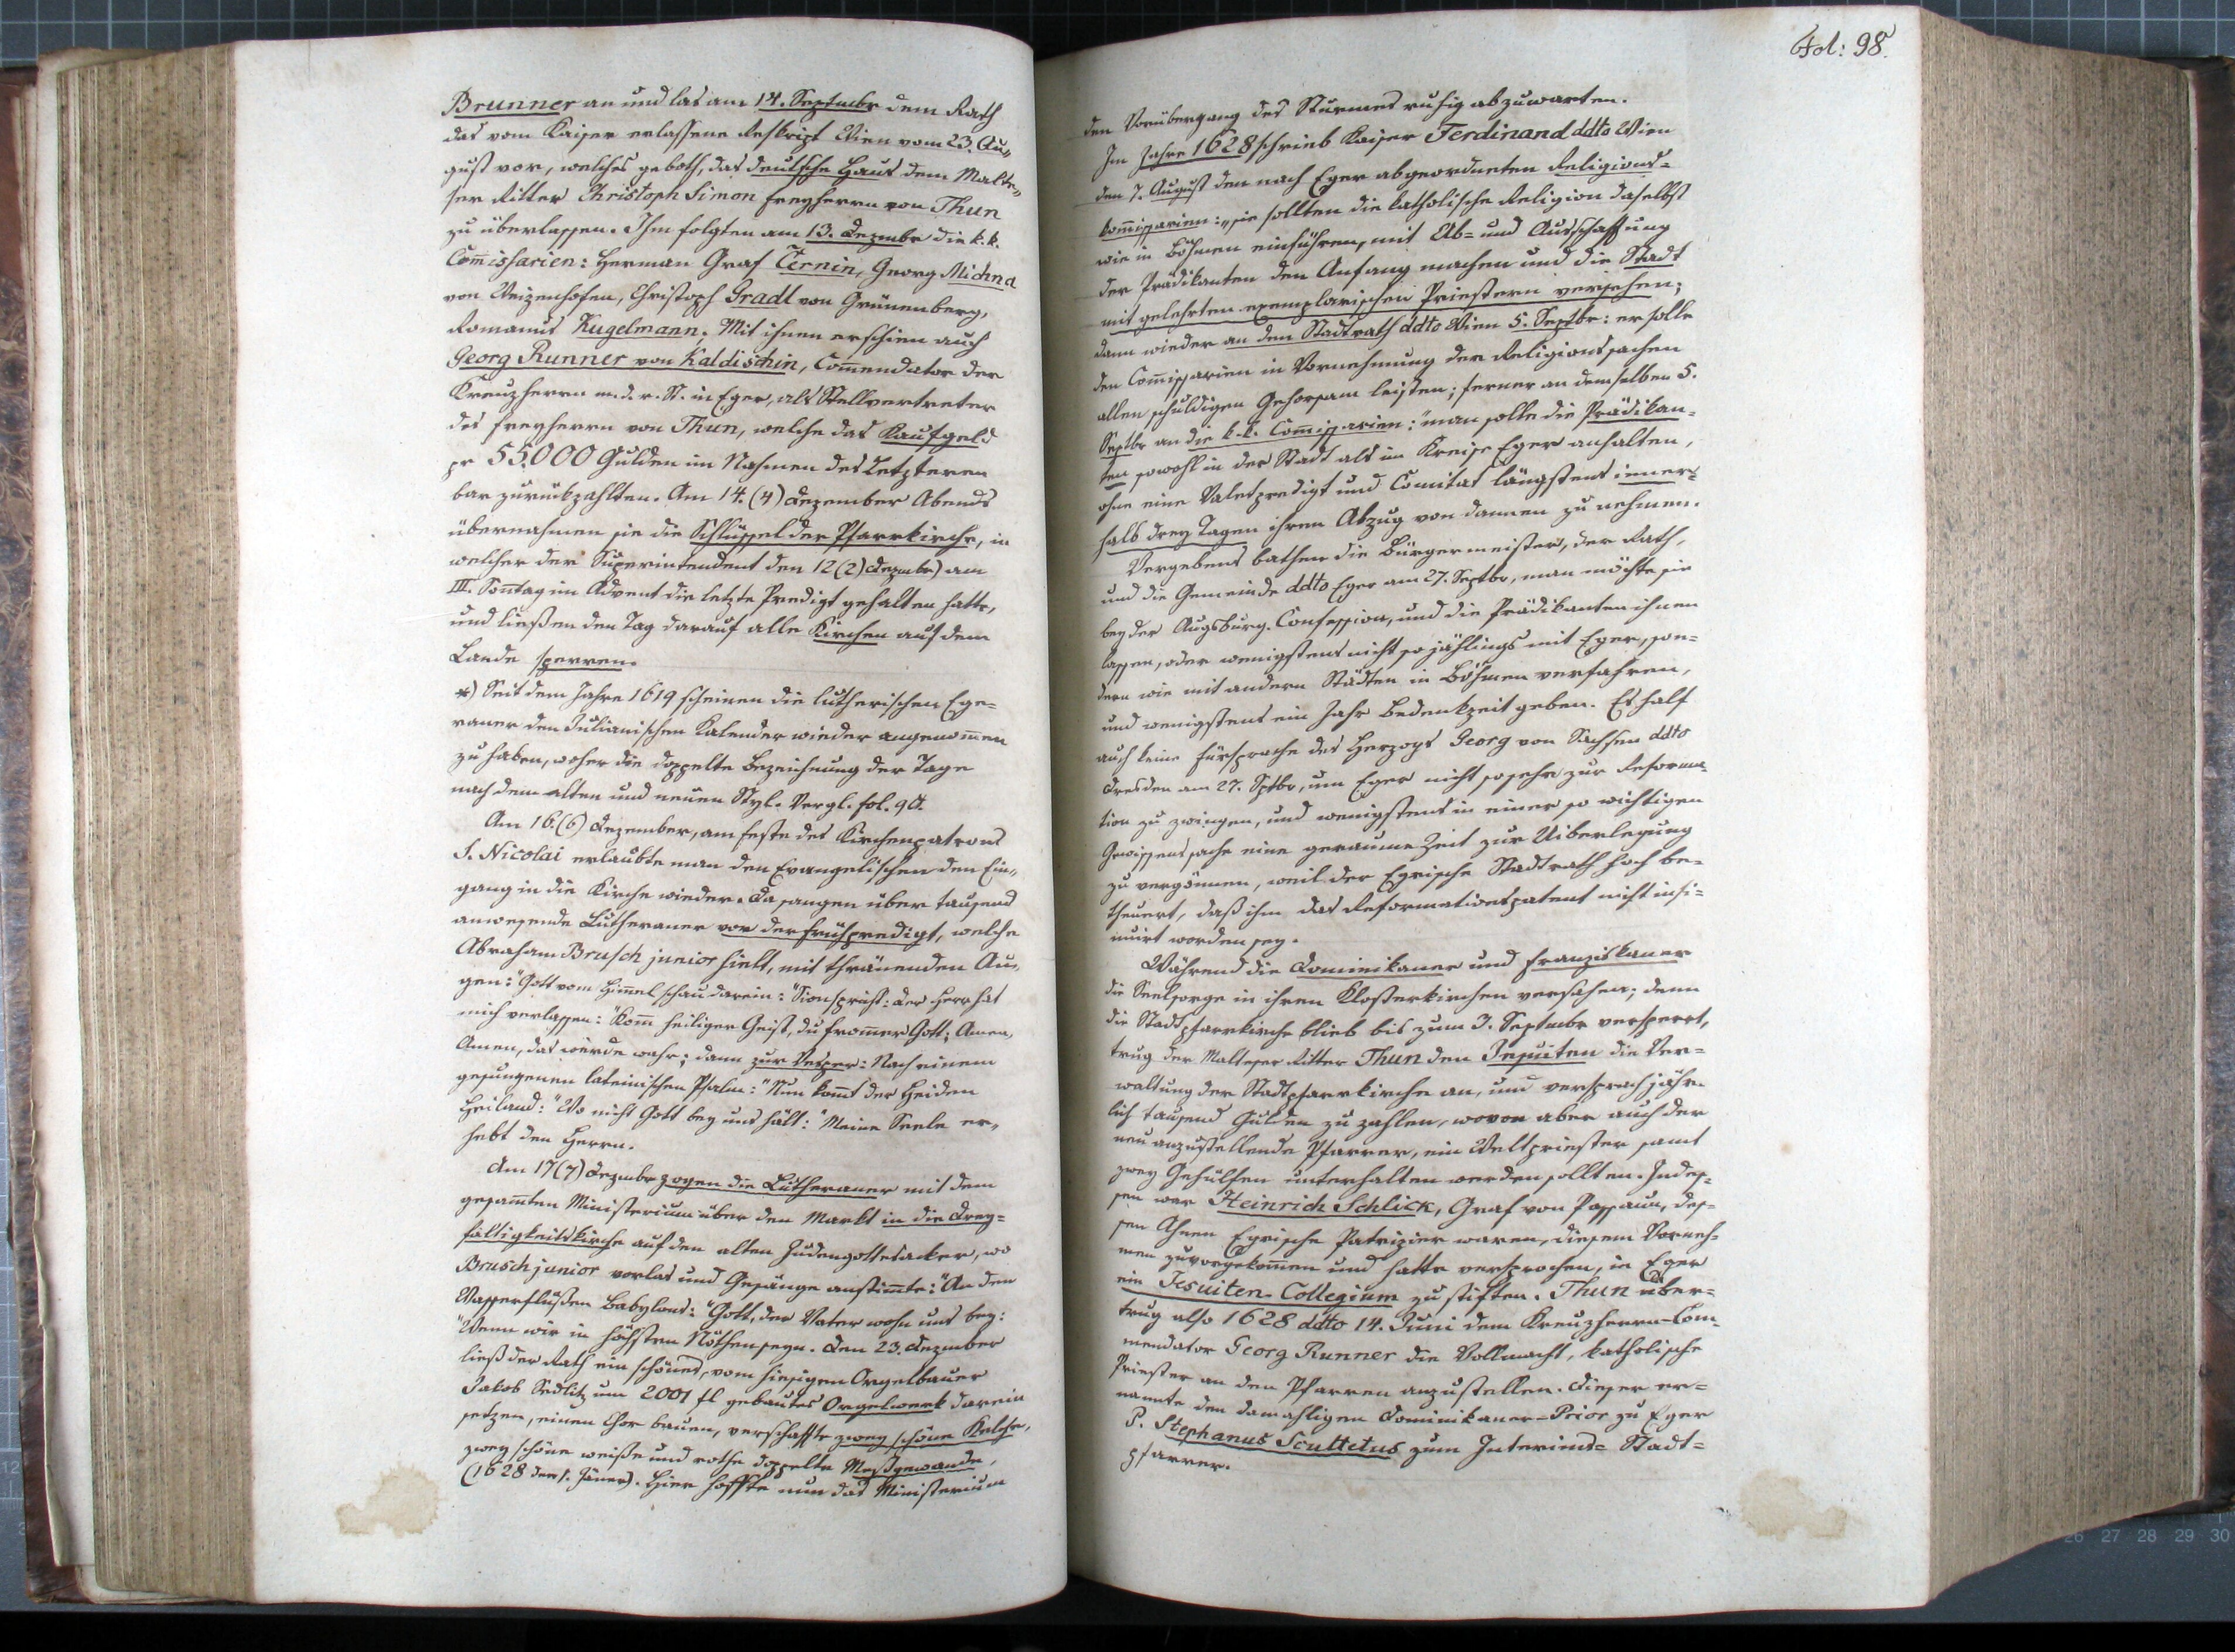 Brunner an und las am 14. Septembr dem Rath
das vom Kaiser erlassene Reskript Wien vom 23. Au„
gust vor, welches geboth, das deutsche Haus dem Malte„
ser Ritter Christoph Simon Freyherrn von Thun
zu überlassen. Ihm folgten am 13. Dezembr die k. k.
Com̄issarien: Herman Graf Černin, Georg Michna
von Weizenhofen, Christoph Gradl von Grünenberg,
Romanus Kugelmann. Mit ihnen erschien auch
Georg Runner von Kaldischin, Com̄endator der
Kreuzherrn m. d. r. St. in Eger, als Stellvertreter
des Freyherrn von Thun, welche das Kaufgeld
pr 55.000 Gulden im Nahmen des Letzteren
bar zurückzahlten. Am 14. (4) Dezember Abends
übernahmen sie die Schlüssel der Pfarrkirche, in
welcher der Superintendent den 12 (2) Dezembr) am
III. Son̄tag im Advent die letzte Predigt gehalten hatte,
und ließen den Tag darauf alle Kirchen auf dem
Lande sperren.
*) Seit dem Jahre 1619 scheinen die lutherischen Ege=
raner den Julianischen Kalender wieder angenom̄en
zu haben, woher die doppelte Bezeichnung der Tage
nach dem alten und neuen Styl. Vergl. fol. 90.
Am 16. (6) Dezember, am Feste des Kirchenpatrons
S. Nicolai erlaubte man den Evangelischen den Ein„
gang in die Kirche wieder. Da sangen über tausend
anwesende Lutheraner vor der Frühpredigt, welche
Abraham Brusch junior hielt, mit thränenden Au„
gen: "Gott vom Him̄el schau darein: "Sion spricht: der Herr hat
mich verlassen: "Kom̄ heiliger Geist, du from̄er Gott; Amen,
Amen, das werde wahr; dann zur Vesper: Nach einem
gesungenen lateinischen Psalm: "Nun kom̄t der Heiden
Heiland: "Wo nicht Gott bey uns hält: "Meine Seele er„
hebt den Herrn.
Am 17 (7) Dezembr zogen die Lutheraner mit dem
gesam̄ten Ministerium über den Markt in die Drey=
faltigkeitskirche auf den alten Judengottesacker, wo
Brusch junior vorlas und Gesänge anstim̄te: "An den
Wasserflüßen Babylons: "Gott, der Vater wohn uns bey:
"Wenn wir in höchsten Nöthen seyn. Den 23. Dezember
ließ der Rath ein schönes, vom hiesigen Orgelbauer
Jakob Sedlitz um 2001 fl gebautes Orgelwerk darein
setzen, einen Chor bauen, verschaffte zwey schöne Kelche,
zwey schöne weiße und rothe doppelte Meßgewande,
(1628 den 1. Jäner). Hier hoffte nun das Ministerium
Fol: 98.
den Vorübergang des Sturmes ruhig abzuwarten.
Im Jahre 1628 schrieb Kaiser Ferdinand ddto Wien
den 7. August den nach Eger abgeordneten Religions=
kom̄issarien: „sie sollten die katholische Religion daselbst
wie in Böhmen einführen, mit Ab= und Ausschaffung
der Prädikanten den Anfang machen und die Stadt
mit gelehrten exemplarischen Priestern versehen;
dann wieder an den Stadtrath ddto Wien 5. Septbr: er solle
den Com̄issarien in Vornehmung der Religionssachen
allen schuldigen Gehorsam leisten; ferner an demselben 5.
Septbr an die k. k. Com̄issarien: "man solle die Prädikan=
ten sowohl in der Stadt als im Kreise Eger anhalten,
ohne eine Valetpredigt und Comitat längstens inner=
halb drey Tagen ihren Abzug von dannen zu nehmen.
Vergebens bathen die Bürgermeister, der Rath,
und die Gemeinde ddto Eger am 27. Septbr, man möchte sie
bey der Augsburg. Confession, und die Prädikanten ihnen
lassen, oder wenigstens nicht so jählings mit Eger, son=
dern wie mit andern Städten in Böhmen verfahren,
und wenigstens ein Jahr Bedenkzeit geben. Es half
auch keine Fürsprache des Herzogs Georg von Sachsen ddto
Dresden am 27. Sptbr, um Eger nicht so sehr zur Reforma=
tion zu zwingen, und wenigstens in einer so wichtigen
Gewissenssache eine geraume Zeit zur Uiberlegung
zu vergönnen, weil der Egrische Stadtrath hoch be=
theuert, daß ihm das Reformationspatent nicht insi=
nuirt worden sey.
Während die Dominikaner und Franziskaner
die Seelsorge in ihren Klosterkirchen versahen; denn
die Stadtpfarrkirche blieb bis zum 3. Septembr versperrt,
trug der Malteser Ritter Thun den Jesuiten die Ver=
waltung der Stadtpfarrkirche an, und versprach jähr=
lich tausend Gulden zu zahlen, wovon aber auch der
neu anzustellende Pfarrer, ein Weltpriester samt
zwey Gehülfen unterhalten werden sollten. Indes=
sen war Heinrich Schlick, Graf von Passaun, des=
sen Ahnen Egrische Patrizier waren, diesem Vorneh=
men zuvorgekom̄en und hatte versprochen, in Eger
ein Jesuiten-Collegium zu stiften. Thun über=
trug also 1628 ddto 14. Juni dem Kreuzherrn-Com=
mendator Georg Runner die Vollmacht, katholische
Priester an den Pfarren anzustellen. Dieser er=
nannte den damahligen Dominikaner=Prior zu Eger
P. Stephanus Scultetus zum Interims= Stadt=
pfarrer.